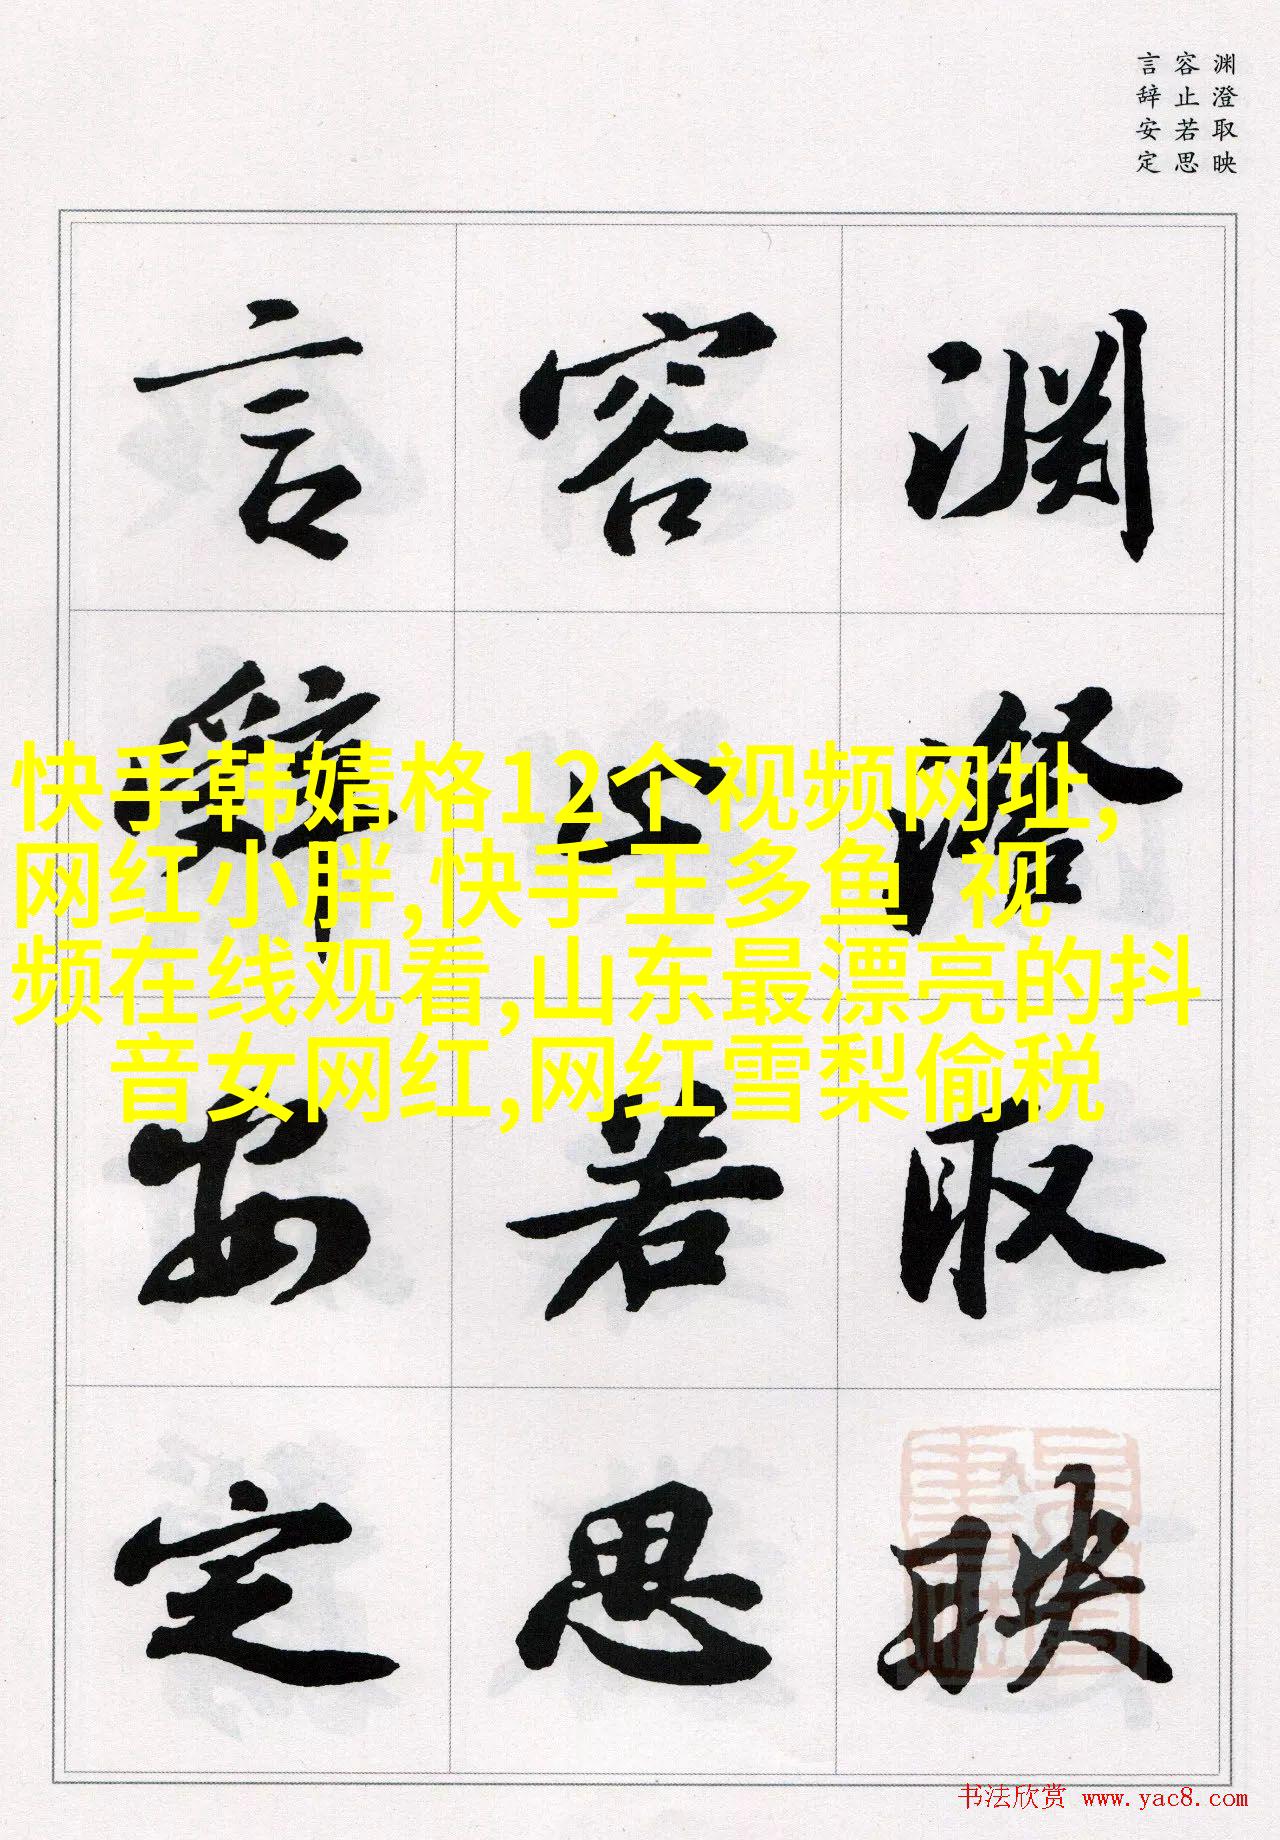 渊澄取映
容止若思
言辞安定
渊澄取映
容止若思
言辞安定
快手韩婧格12个视频网址,
网红小胖,快手王多鱼 视
频在线观看,山东最漂亮的抖
音女网红,网红雪梨偷税
书法欣赏 www.yac8.com